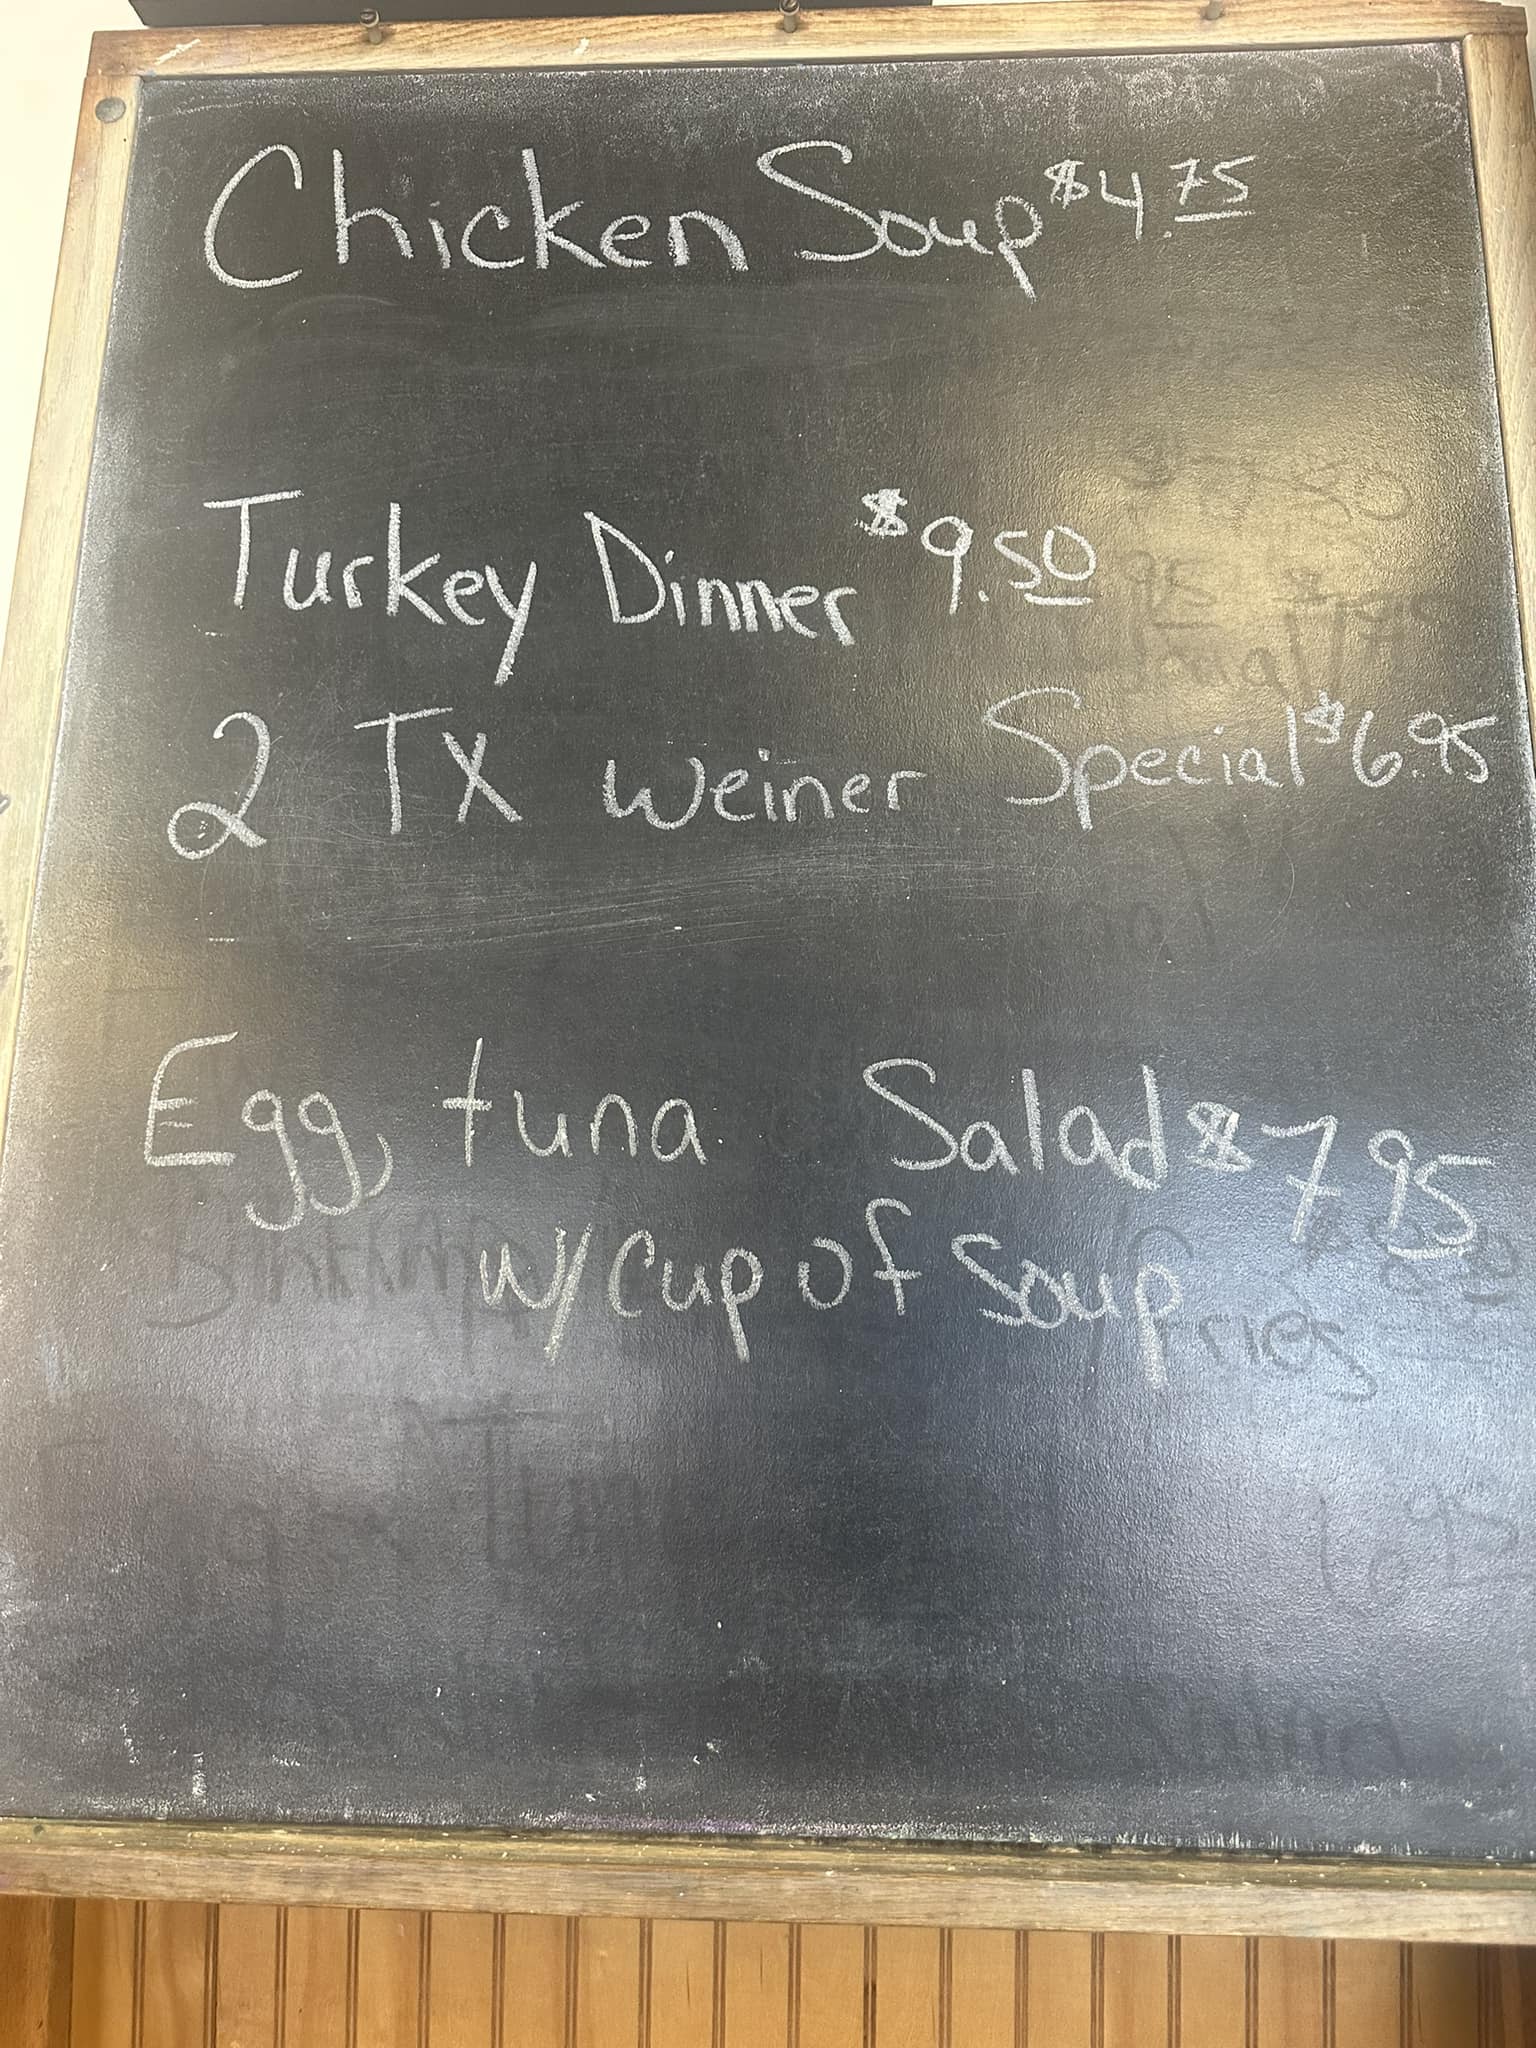 Chicken Soup $4.75
Turkey Dinner $9.50
2 TX Weiner Special $6.95
Egg, tuna Salad $7.95
w/cup of soup